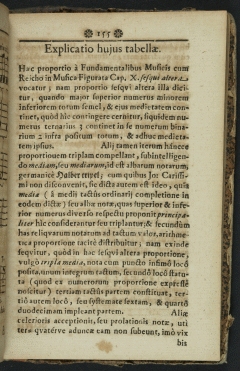 155
Explicatio hujus tabellæ.
Hæc proportio à Fundamentalibus Musicis cum
Reicho in Musica Figurata Cap. X. sesqui altera
vocatur; nam proportio sesqui altera illa dici-
tur, quando major superior numerus minorem
inferiorem totum semel, & ejus mediam partem con-
tinet, quòd hîc contingere cernitur, siquidem nu-
merus ternarius 3 continet in se numerum bina-
rium 2 infra positum totum, & adhuc medieta-
tem ipsius. Alij tamen iterum hancce
proportionem triplam compellant, subintelligen-
do mediam, seu mediarum, id est albarum notarum,
germanicè Halber tripel; cum quibus Jor Carissi-
mi non disconvenit, sic dicta autem est ideo, quia
media (à medii tactûs ordinarij completione in
eodem dictæ) seu albæ notæ, quas superior & infe-
rior numerus diverso respectu proponit principa-
liter hîc considerantur seu triplantur; & secundùm
has reliquarum notarum ad tactum valor, arithme-
tica proportione tacitè distribuitur; nam exinde
sequitur, quòd in hac sesqui altera proportione,
vulgò tripla media, nota cum puncto infimo locô
posita, unum integrum tactum, secundô locô statu-
ta (quod ex numerorum proportione expressè
noscitur) tertiam tactûs partem constituat, ter-
tiô autem locô, seu systemate sextam, & quartô
duodecimam impleant partem. Aliæ
celerioris acceptionis, seu prolationis notæ, uti
tera quatérve aduncæ eam non subeunt, imò vix
bis